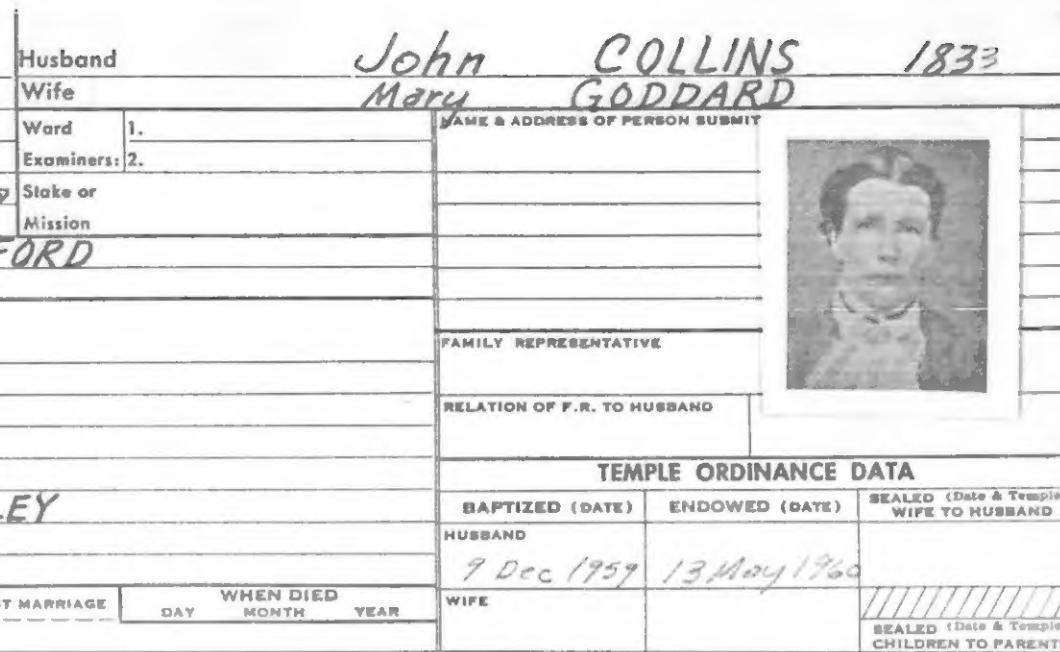 Husband John COLLINS 1833
Wife Mary GODDARD
Ward 1.
Examiners: 2.
Stake or
Mission
FORD
NAME & ADDRESS OF PERSON SUBMIT
FAMILY REPRESENTATIVE
RELATION OF F.R. TO HUSBAND
LEY
TEMPLE ORDINANCE DATA
BAPTIZED (DATE) ENDOWED (DATE) SEALED (Date & Temple
WIFE TO HUSBAND
HUSBAND
9 Dec 1959 13 May 1960
T MARRIAGE WHEN DIED
DAY MONTH YEAR
WIFE
SEALED (Date & Temple
CHILDREN TO PARENT